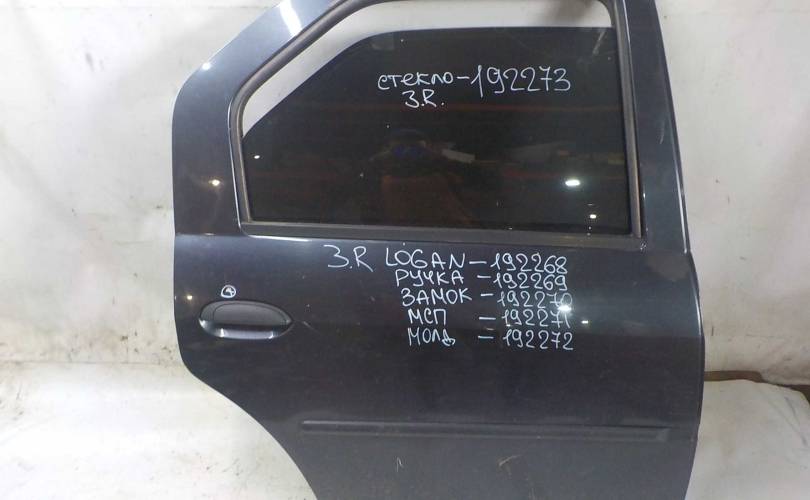 стекло-192273
З.R.
З.R LOGAN-192268
РУЧКА -192269
ЗАМОК-192270
МСП -192271
МОЛД -192272